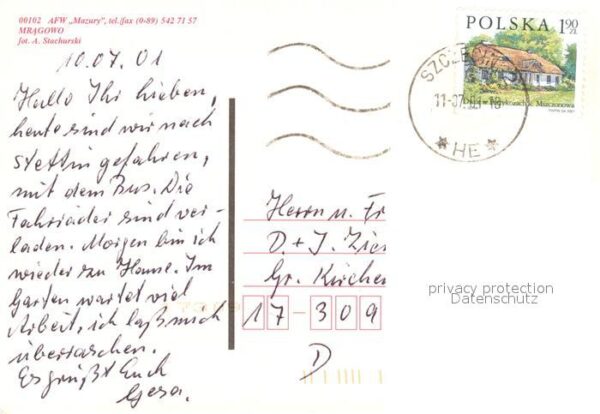 00102 AFW „Mazury”, tel./fax (0-89) 542 71 57
MRĄGOWO
fot. A. Stachurski
10.07.01
Hallo Ihr lieben,
heute sind wir nach
Stettin gefahren,
mit dem Bus. Die
Fahrräder sind ver-
laden. Morgen bin ich
wieder zu Hause. Im
Garten wartet viel
Arbeit, ich laß mich
überraschen.
Es grüßt Euch
Gesa.
POLSKA 1,90 zł
SZCZECIN
11-07.01-18
* HE *
Herrn u. Fr
D + J. Zie
Gr. Kirchen
17-309
D
privacy protection
Datenschutz